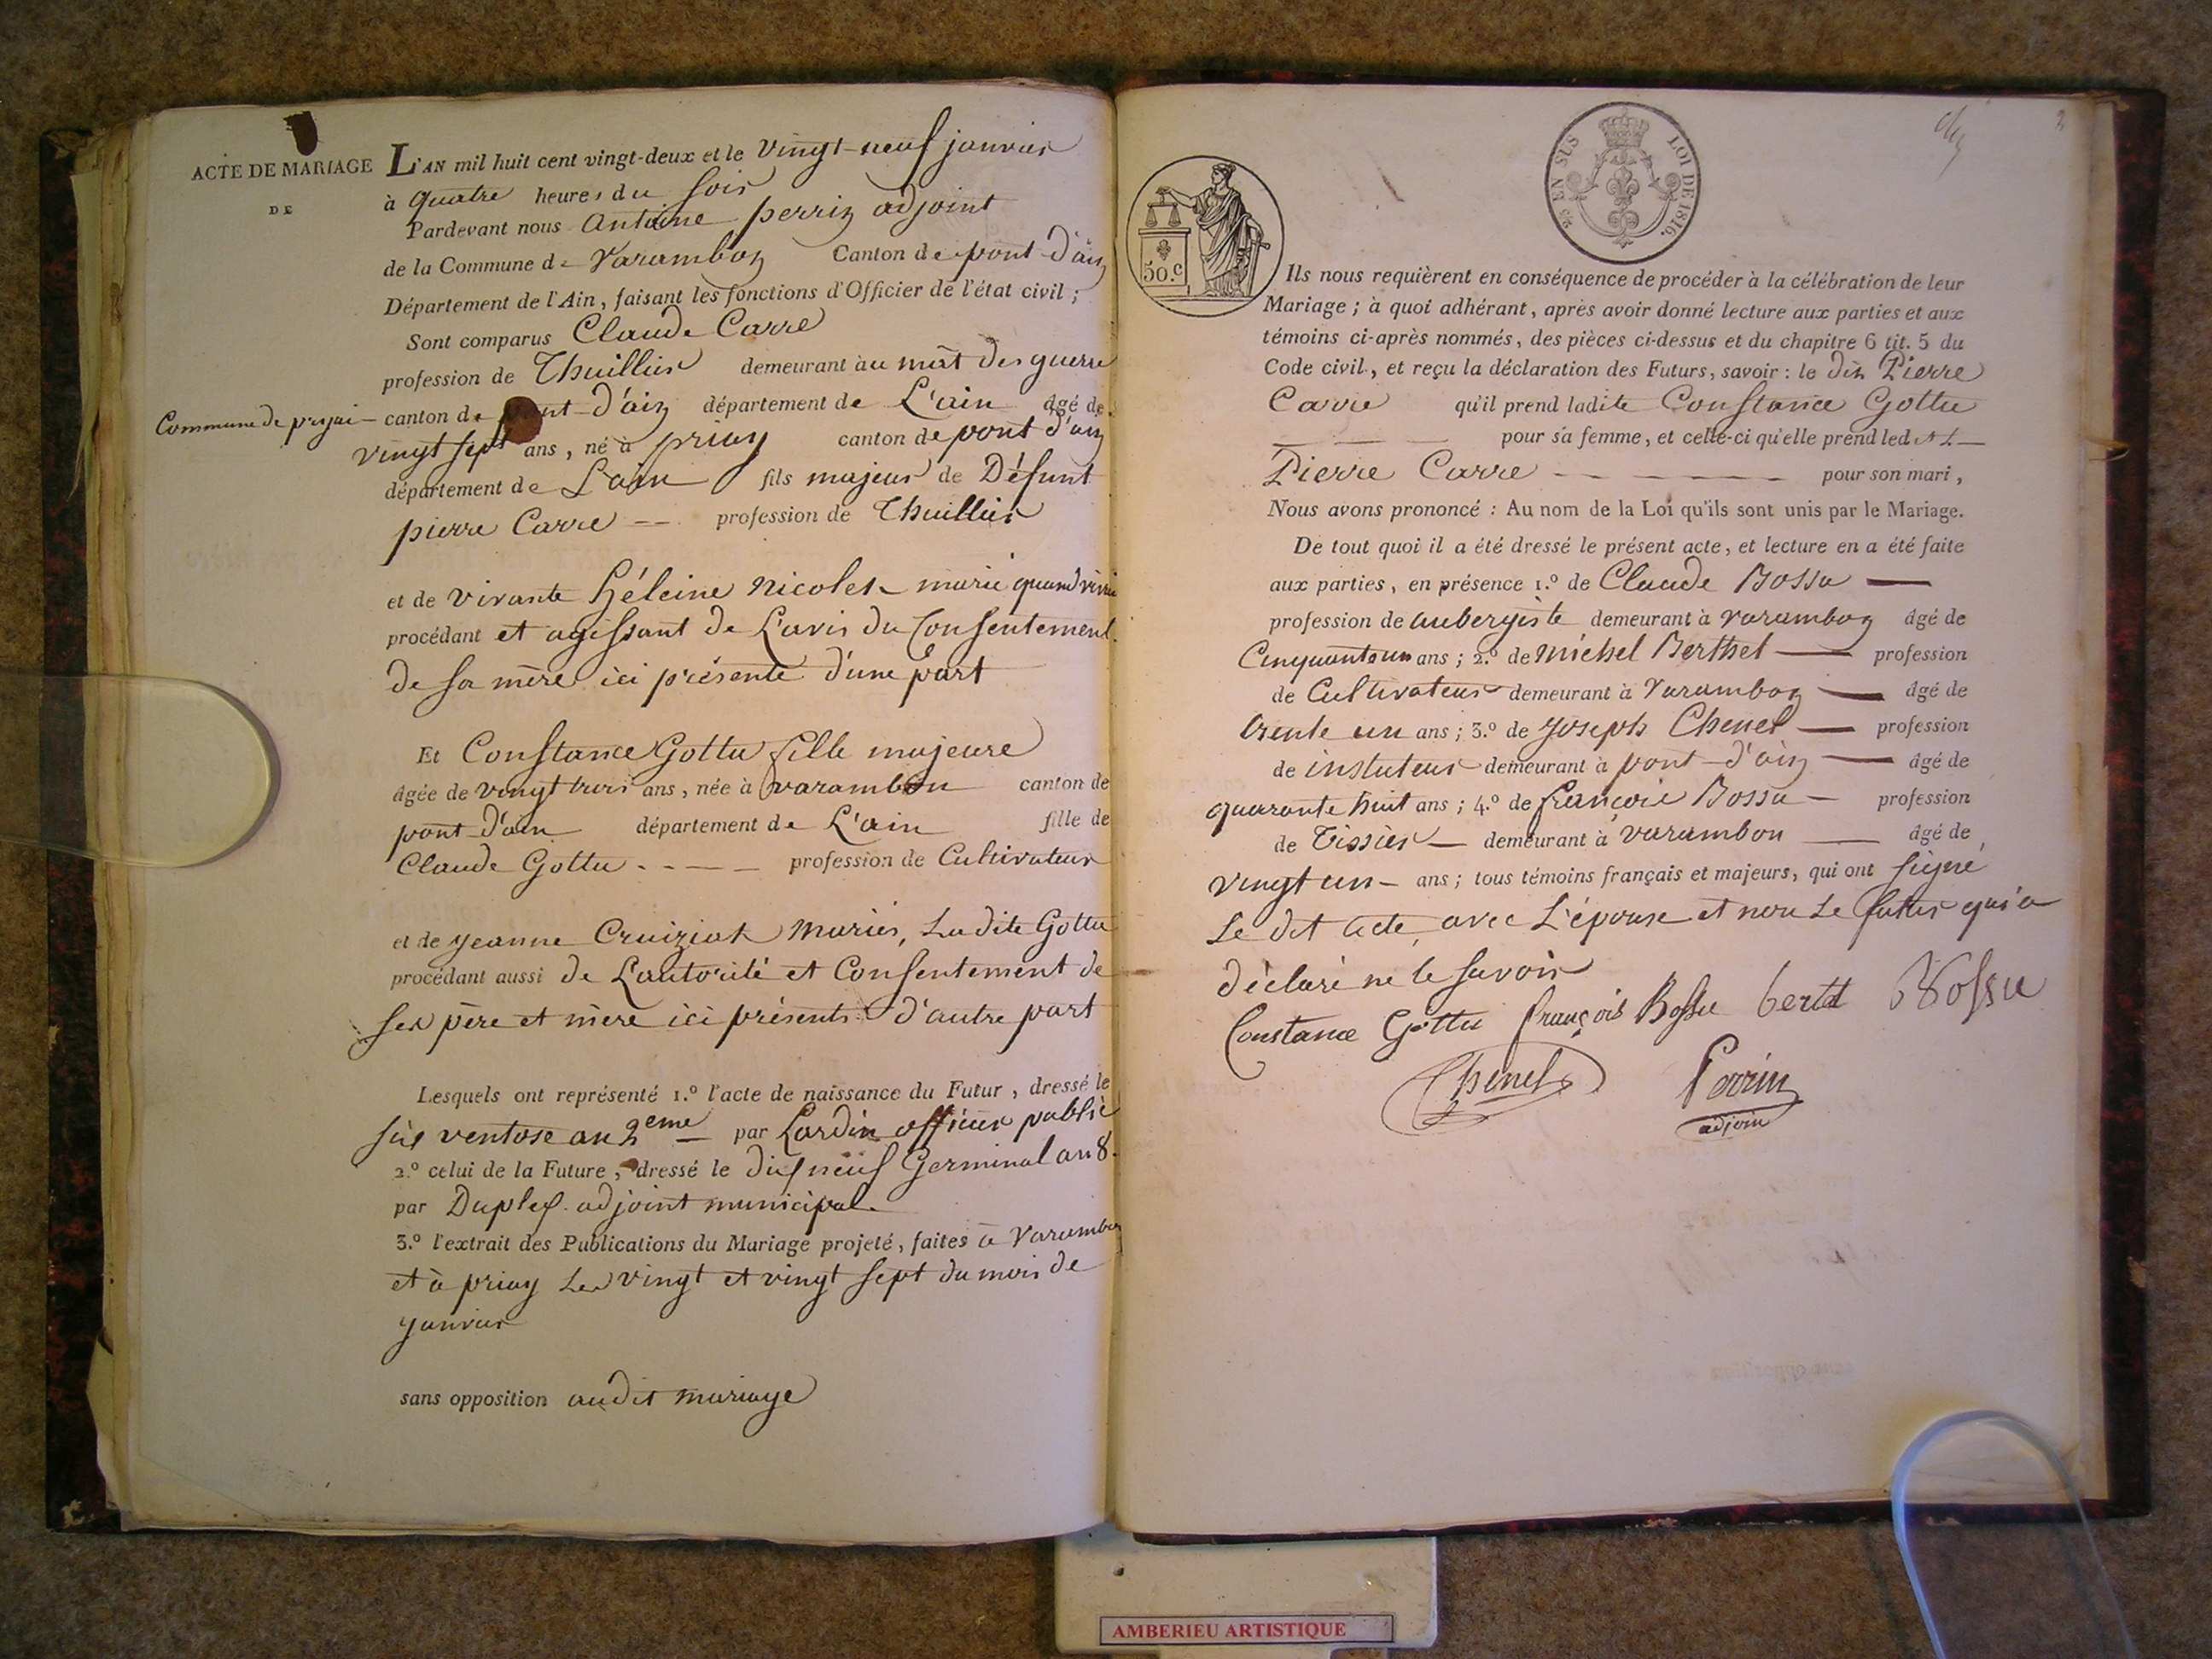 ACTE DE MARIAGE
DE
L'AN mil huit cent vingt-deux et le vingt-neuf janvier
à quatre heures du soir
Pardevant nous Antoine perrin adjoint
de la Commune de Varambon Canton de pont-d'ain
Département de l'Ain, faisant les fonctions d'Officier de l'état civil ;
Sont comparus Claude Carre
profession de Thuillier demeurant au mât des guerre
Commune de
canton de pont-d'ain département de L'ain âgé de
vingt sept ans, né à priay canton de pont d'ain
département de L'ain fils majeur de Défunt
pierre Carre — profession de Thuillier
et de vivante héleine Nicolet marié quand vivai
procédant et agissant de L'avis du Consentement
de sa mère ici présente d'une part
Et Constance Gottu fille majeure
âgée de vingt trois ans, née à varambon canton de
pont-d'ain département de L'ain fille de
Claude Gottu - - - - profession de Cultivateur
et de jeanne Cruiziat mariés, La dite Gottu
procédant aussi de L'autorité et Consentement de
ses père et mère ici présents d'autre part
Lesquels ont représenté 1.º l'acte de naissance du Futur, dressé le
six ventose an 2eme — par Lardin officier public
2.º celui de la Future, dressé le dix neuf Germinal an 8.
par Duplex adjoint municipal.
3.º l'extrait des Publications du Mariage projeté, faites à Varambon
et à priay Les vingt et vingt sept du mois de
janvier
sans opposition audit mariage
EN SUS LOI DE 1816.
50.c
2
Ils nous requièrent en conséquence de procéder à la célébration de leur
Mariage ; à quoi adhérant, après avoir donné lecture aux parties et aux
témoins ci-après nommés, des pièces ci-dessus et du chapitre 6 tit. 5 du
Code civil, et reçu la déclaration des Futurs, savoir : le dit Pierre
Carre qu'il prend ladite Constance Gottu
— — — pour sa femme, et celle-ci qu'elle prend led it —
Pierre Carre — — — — — pour son mari,
Nous avons prononcé : Au nom de la Loi qu'ils sont unis par le Mariage.
De tout quoi il a été dressé le présent acte, et lecture en a été faite
aux parties, en présence 1.º de Claude Bossu —
profession de aubergiste demeurant à varambon âgé de
Cinquante un ans ; 2.º de Michel Berthet — profession
de Cultivateur demeurant à Varambon — âgé de
trente un ans ; 3.º de joseph Chenel — profession
de instuteur demeurant à pont-d'ain — âgé de
quarante huit ans ; 4.º de françois Bossu — profession
de Tissier — demeurant à varambon — âgé de
vingt un — ans ; tous témoins français et majeurs, qui ont signé
Le dit acte, avec L'épouse et non Le futur qui a
déclaré ne le savoir
Constance Gottu françois Bossu bertet Bossu
Chenel Perrin
adjoin
AMBERIEU ARTISTIQUE